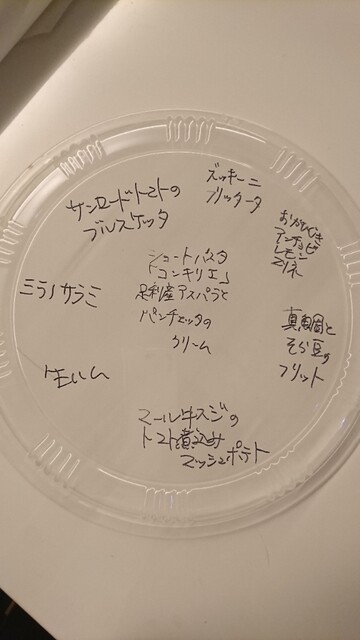 ズッキーニ
フリッタータ
サンロードトマトの
ブルスケッタ
おかひじき
アンチョビ
レモン
マリネ
ショートパスタ
「コンキリエ」
足利産アスパラと
パンチェッタの
クリーム
ミラノサラミ
真鯛と
そら豆の
フリット
生ハム
マール牛スジの
トマト煮込み
マッシュポテト